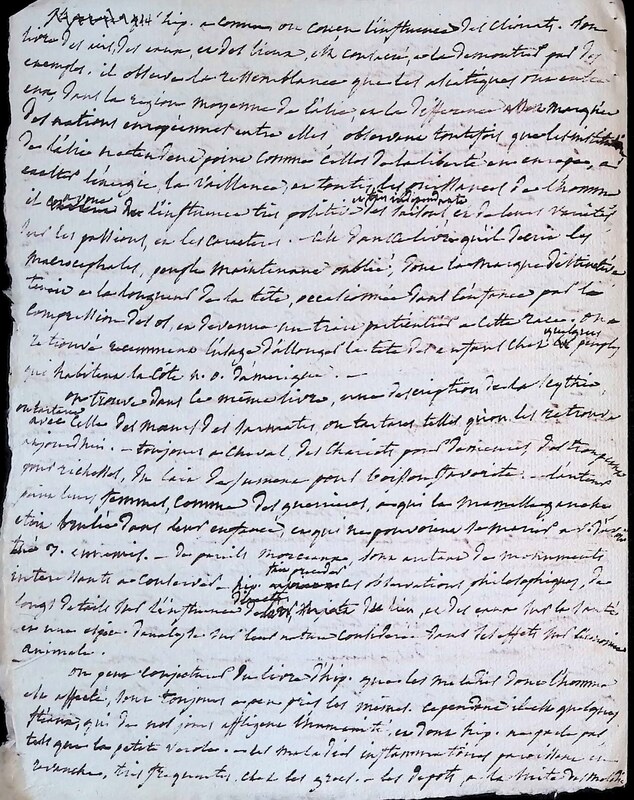 hip. a connu on conçu l'influence des climats. Son
livre des airs, des eaux, et des lieux, est consacré, a la demontrer par des
exemples. il observe la ressemblance que les asiatiques ont entre
eux, dans la région moyenne de l'asie, et la difference marquée
des nations européennes entre elles observant toutefois que les
de l'asie ne tendent point comme celles de la liberté en europe, a
exalter l'énergie, la vaillance, et toutes les puissances de l'homme
il de l'influence très positive des saisons et de leurs variétés,
sur les passions, et les caracteres. – C'est dans ce livre qu'il décrit les
macrocephales, peuple maintenant oublié, dont la marque
a la longueur de la tête, occasionnée dans l'enfance par la
compression des os, et devenue un trait particulier a cette race. on a
retrouvé l'usage d'allonger la tete des enfans chez quelques peuples
qui habitent la côte n. o. d'amerique. –
on trouve dans ce même livre, une description de la scythie
avec celle des mœurs des sarmates, ou tartares, telles qu'on les retrouve
aujourdhui. – toujours a cheval, des chariots pour demeures, des troupeaux
pour richesses, du lait de jument pour boisson favorite. –
leurs femmes, comme des guerrieres, a qui la mamelle gauche
etoit brulée dans leur enfance, et qui ne pouvoient se marier
tué 3. ennemis. – de pareils morceaux, sont autant de monuments
interessants a conserver. – hip. ces observations philosophiques, de
longs details sur l'influence du lieu, et des eaux sur la santé
et une espèce d'analyse sur leur nature considerée dans ses effets sur
animale.
on peut conjecturer du livre d'hip. que les maladies dont l'homme
est affecté, sont toujours a peu près les mêmes. cependant il est quelques
fléaux, qui de nos jours affligent l'humanité, et dont hip. ne parle pas
tels que la petite verole. – les maladies inflammatoires paroissent en
revanche, très frequentes, chez les grecs. – les depots, a la suite des maladies